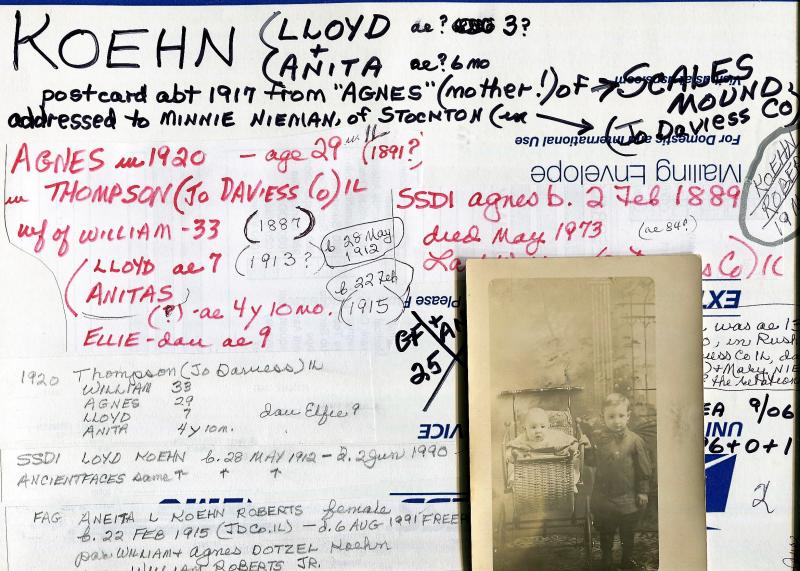 KOEHN
LLOYD ae? 3?
+
ANITA ae? 6 mo
postcard abt 1917 from "AGNES" (mother!) of → SCALES MOUND,
addressed to MINNIE NIEMAN, of STOCKTON → (Jo Daviess Co)
For Domestic and International Use
Mailing Envelope
KOEHN
AGNES in 1920 - age 29 (1891?)
in THOMPSON (Jo DAVIESS Co) IL
wf of WILLIAM - 33 (1887)
LLOYD ae 7 (1913?) b. 28 May 1912
ANITAS
(?) - ae 4 y 10 mo. b. 22 Feb 1915
ELLIE - dau ae 9
SSDI agnes b. 2 Feb 1889
died May 1973 (ae 84?)
Co) IL
Please
EX
GF +
25
was ae 13
in Rush
Co IL, da
+ Mary NIE
the
1920 Thompson (Jo Daviess) IL
WILLIAM 33
AGNES 29
LLOYD 7 dau Elfie 9
ANITA 4 y 10 m.
SSDI LOYD KOEHN b. 28 MAY 1912 - d. 2 Jun 1990 -
ANCIENTFACES same ↑ ↑ ↑
VICE
UNI
EA 9/06
6+0+1
2
FAG ANEITA L KOEHN ROBERTS female
b. 22 FEB 1915 (JDCo.IL) - d. 6 AUG 1991 FREE
par WILLIAM + Agnes DOTZEL Koehn
WILLIAM ROBERTS JR.